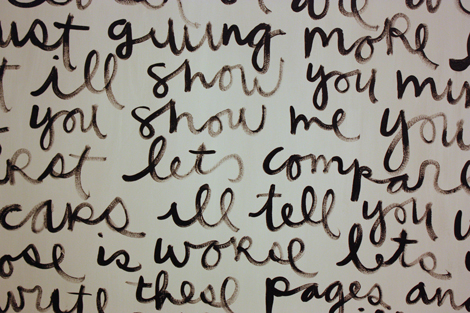 just giving more
ill show you min
you show me you
irst lets compare
cars ill tell you w
ose is worse lets
write these pages an